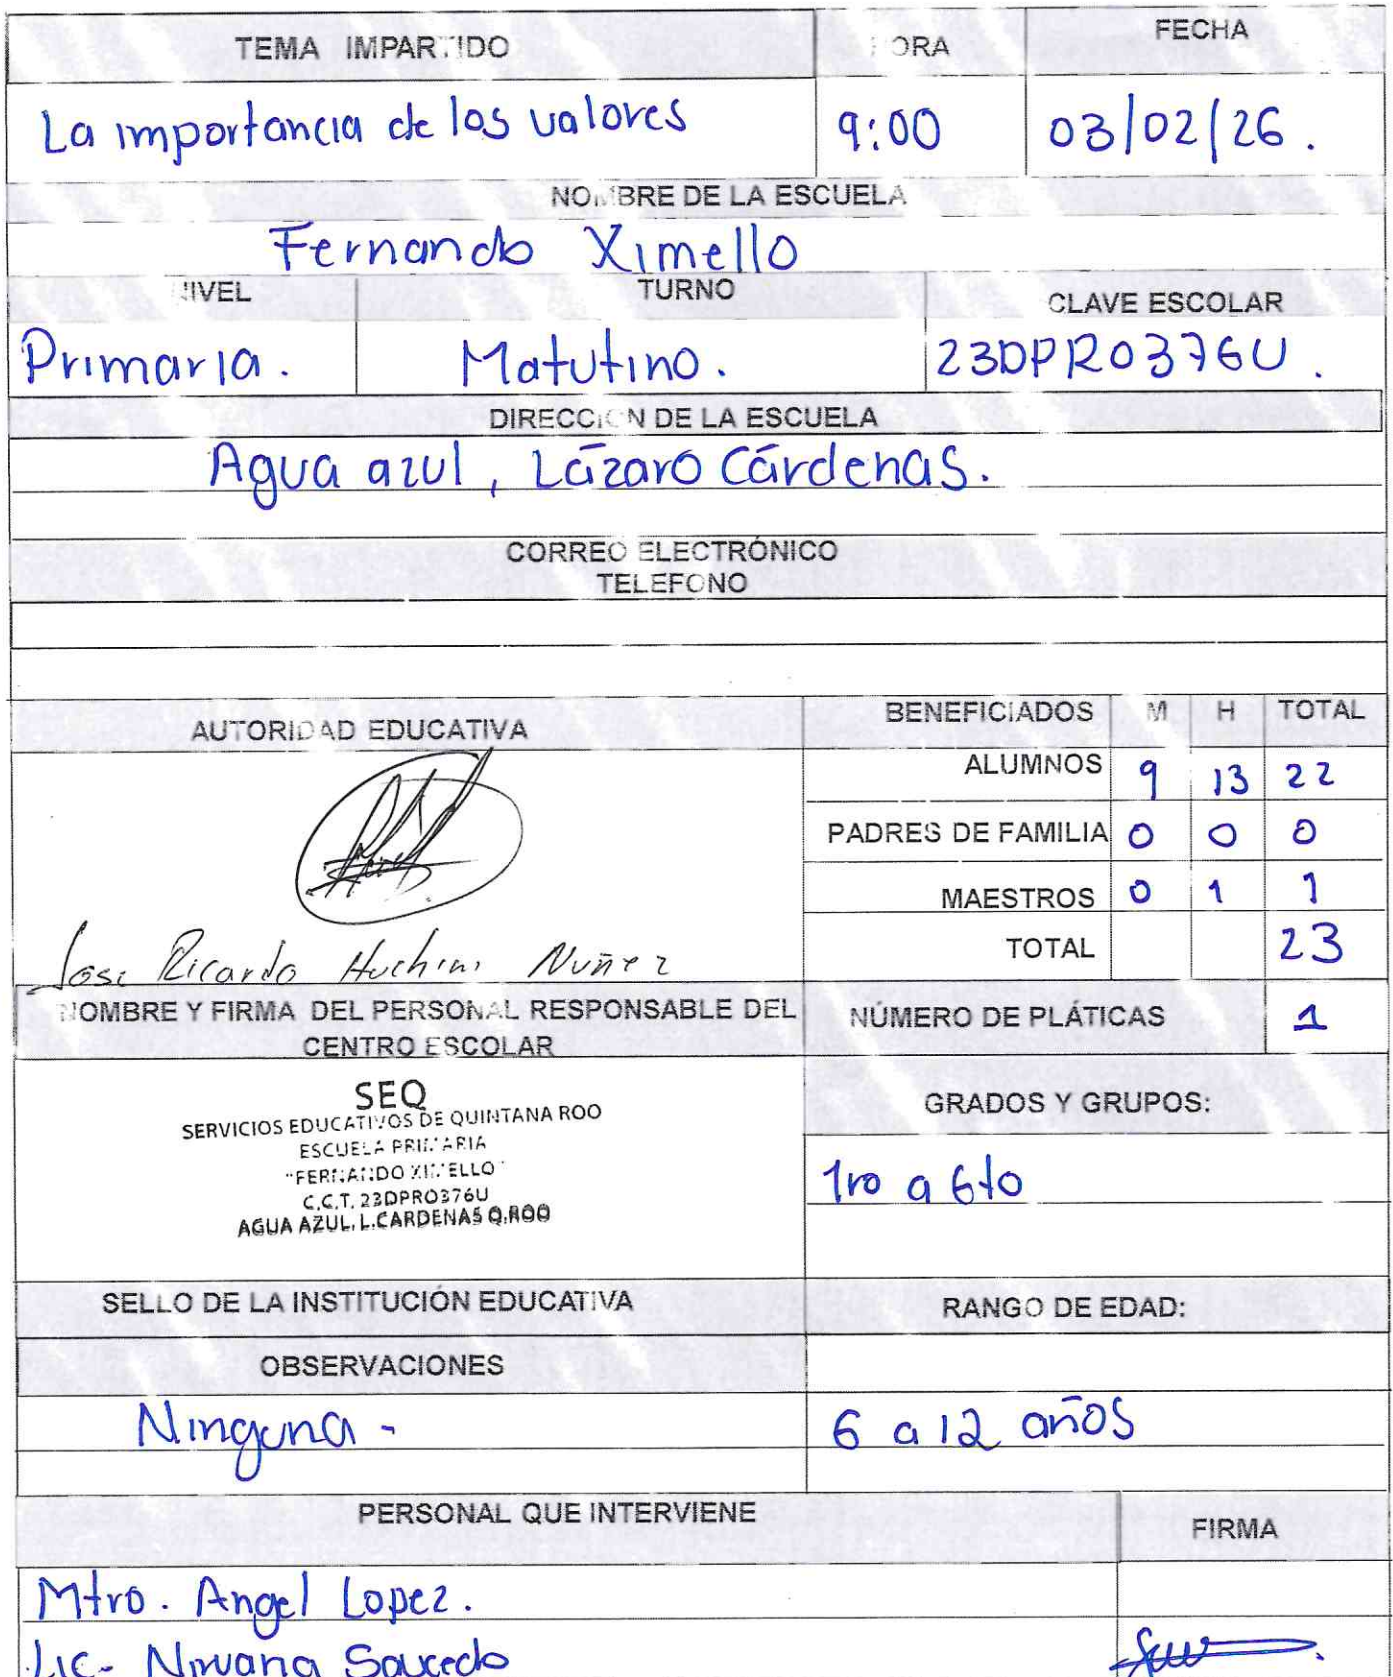 TEMA IMPARTIDO HORA FECHA
La importancia de los valores 9:00 03/02/26.
NOMBRE DE LA ESCUELA
Fernando Ximello
NIVEL TURNO CLAVE ESCOLAR
Primaria. Matutino. 23DPR0376U.
DIRECCION DE LA ESCUELA
Agua azul, Lázaro Cárdenas.
CORREO ELECTRÓNICO
TELEFONO
AUTORIDAD EDUCATIVA BENEFICIADOS M H TOTAL
ALUMNOS 9 13 22
PADRES DE FAMILIA 0 0 0
MAESTROS 0 1 1
TOTAL 23
Jose Ricardo Huchim Nuñez
NOMBRE Y FIRMA DEL PERSONAL RESPONSABLE DEL
CENTRO ESCOLAR
NÚMERO DE PLÁTICAS 1
SEQ
SERVICIOS EDUCATIVOS DE QUINTANA ROO
ESCUELA PRIMARIA
"FERNANDO XIMELLO"
C.C.T. 23DPR0376U
AGUA AZUL, L.CARDENAS Q.ROO
GRADOS Y GRUPOS:
1ro a 6to
SELLO DE LA INSTITUCIÓN EDUCATIVA RANGO DE EDAD:
OBSERVACIONES
Ninguna - 6 a 12 años
PERSONAL QUE INTERVIENE FIRMA
Mtro. Angel Lopez.
Lic- Nirvana Saucedo